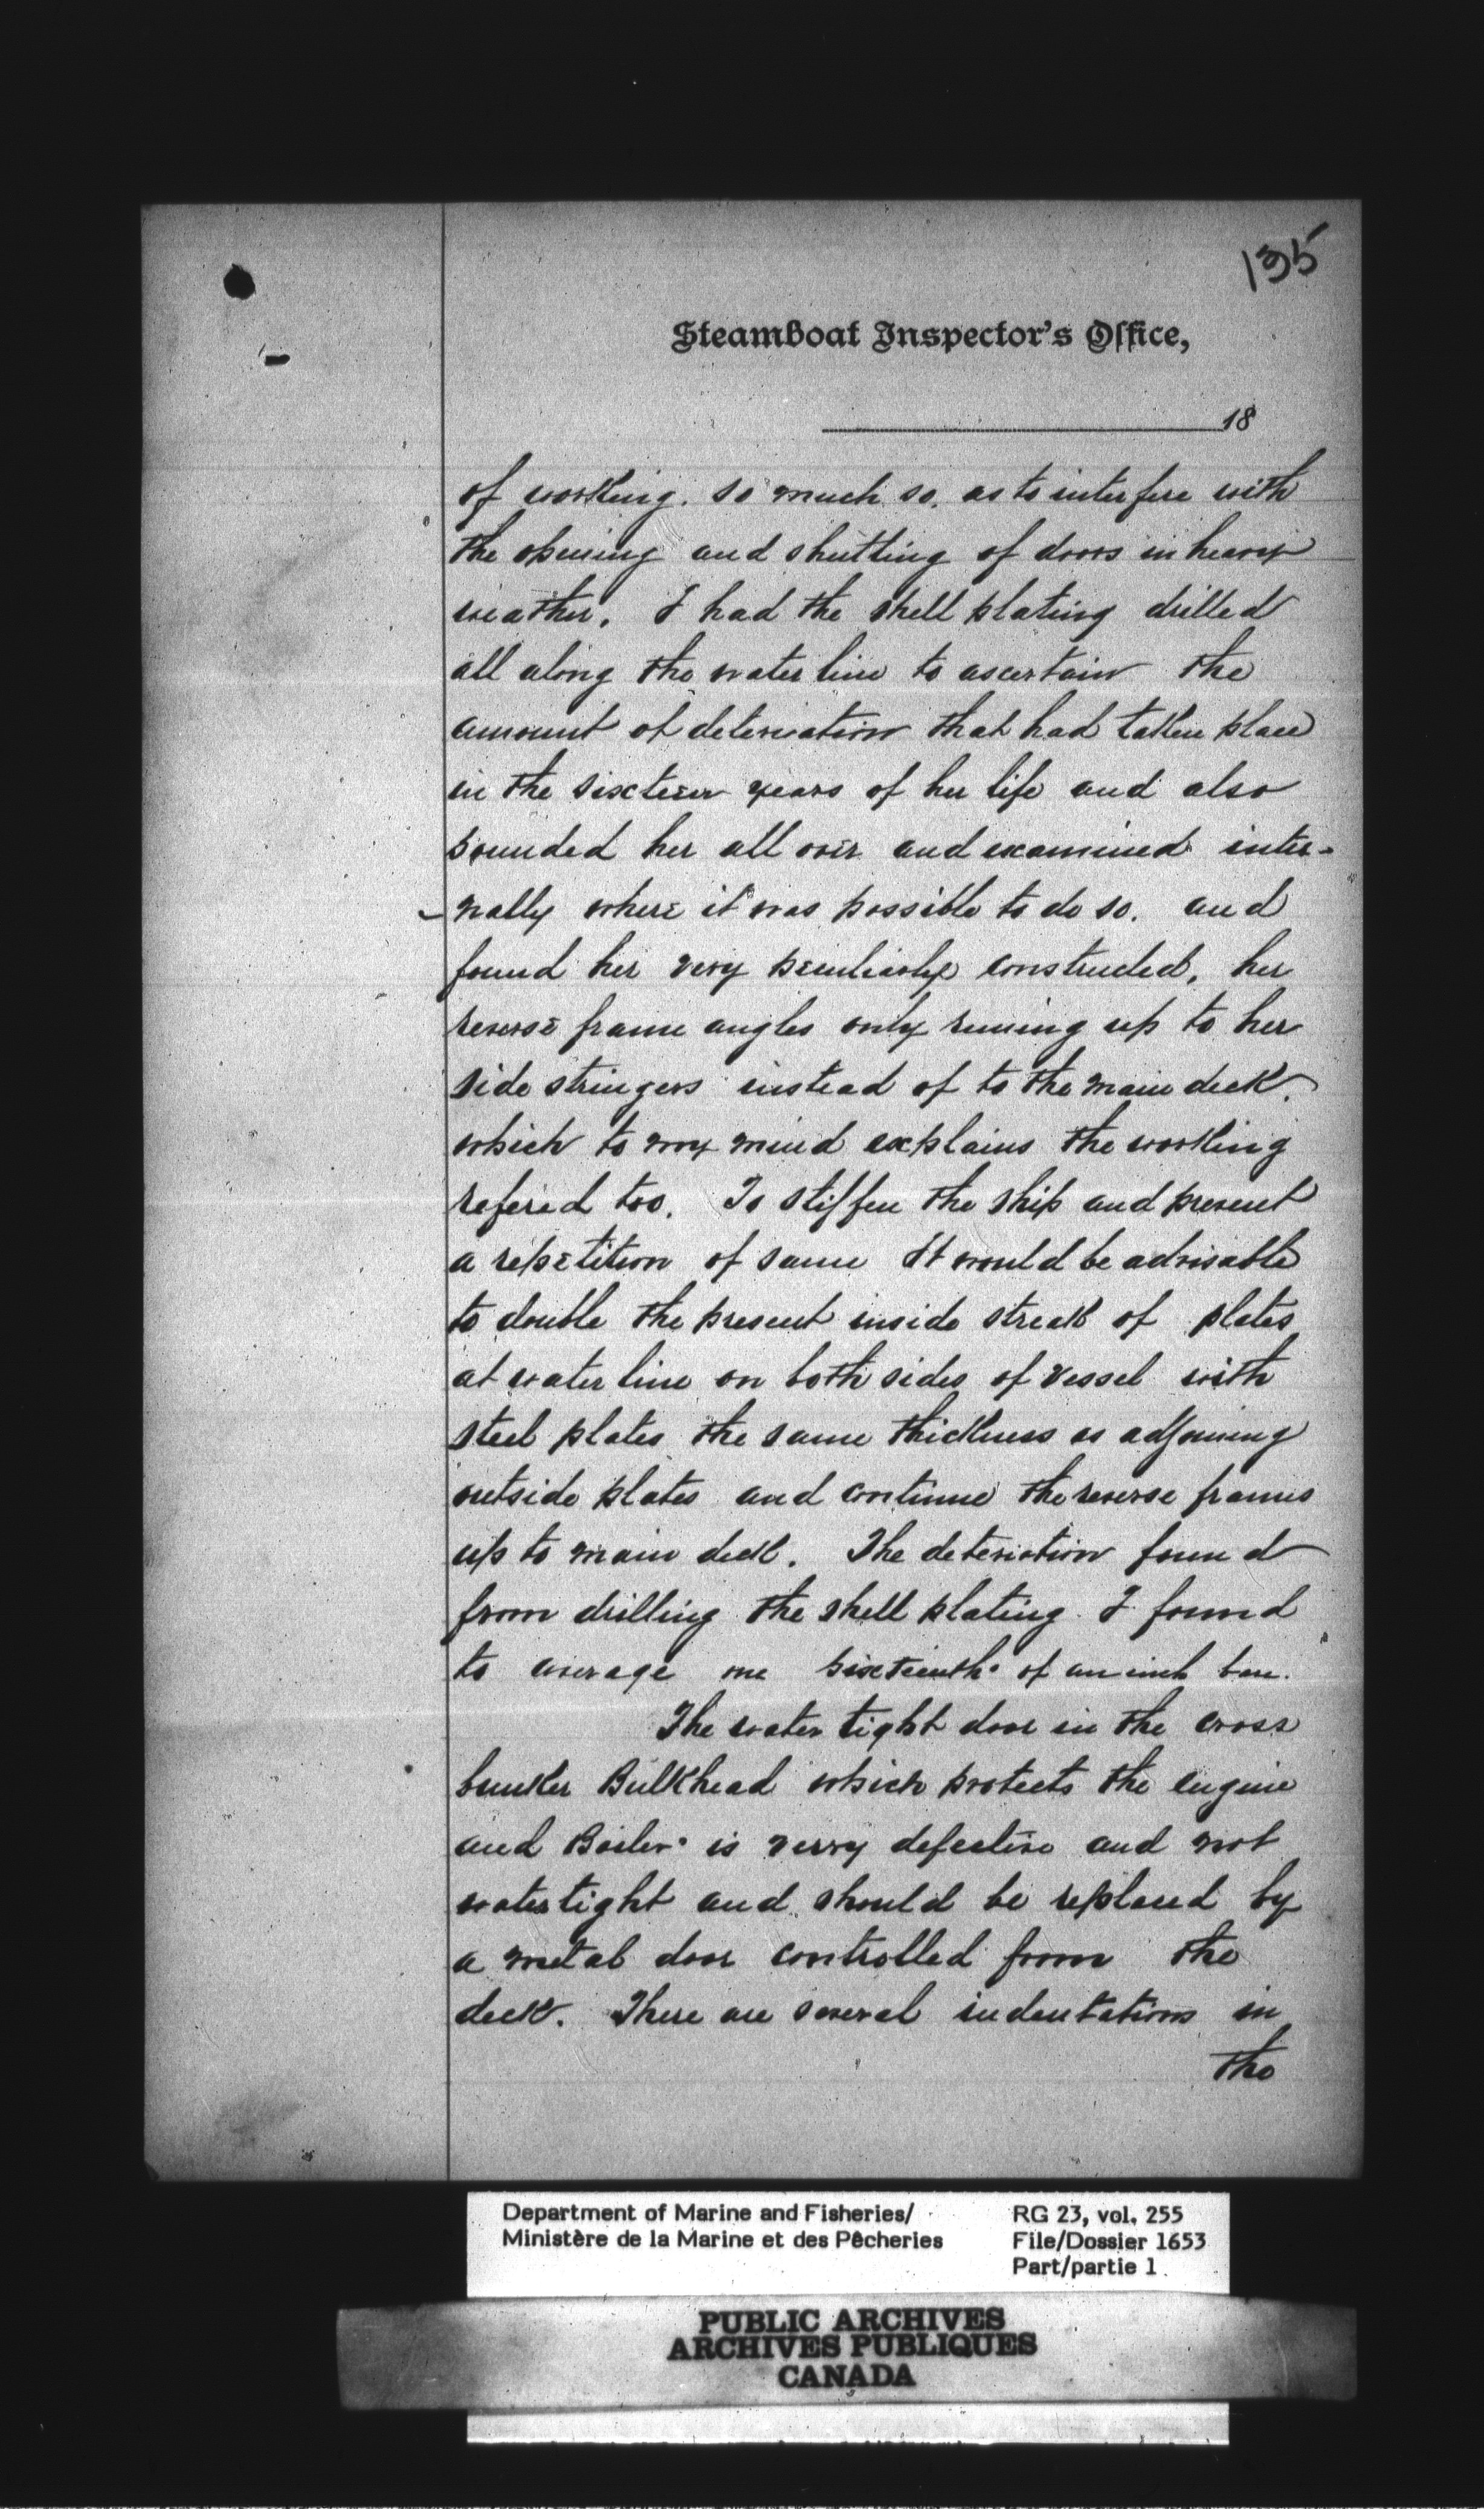 135
Steamboat Inspector's Office,
18
of working. so much so. as to interfere with
the opening and shutting of doors in heavy
weather. I had the shell plating drilled
all along the water line to ascertain the
amount of deteriation that had taken place
in the sixteen years of her life and also
sounded her all over and examined inter-
-nally where it was possible to do so. and
found her very peculiarly constructed, her
reverse frame angles only runing up to her
side stringers instead of to the main deck.
which to my mind explains the working
refered too. To stiffen the ship and prevent
a repetition of same It would be advisable
to double the present inside streak of plates
at water line on both sides of vessel with
steel plates the same thickness as adjoining
outside plates and continue the reverse frames
up to main deck. The deteriation found
from drilling the shell plating I found
to average one sixteenth of an inch
The water tight door in the cross
bunker Bulkhead which protects the engine
and Boiler is verry defective and not
watertight and should be replaced by
a metal door controlled from the
deck. There are several indentations in
the
Department of Marine and Fisheries/
Ministère de la Marine et des Pêcheries
RG 23, vol. 255
File/Dossier 1653
Part/partie 1
PUBLIC ARCHIVES
ARCHIVES PUBLIQUES
CANADA